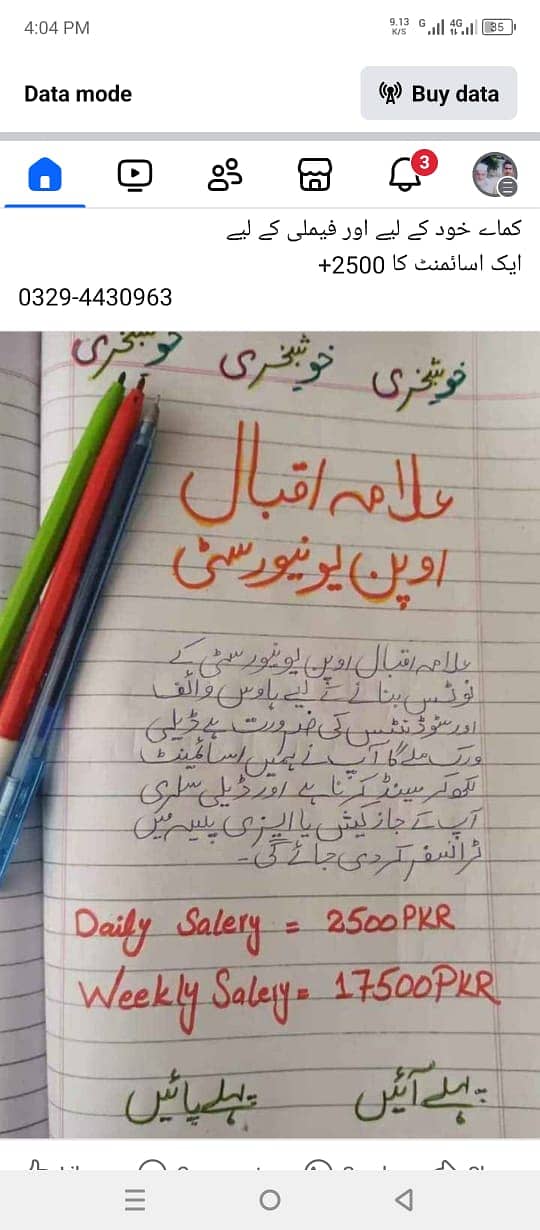 4:04 PM
9.13 K/S G 4G 35
Data mode
Buy data
3
کماے خود کے لیے اور فیملی کے لیے
ایک اسائمنٹ کا 2500+
0329-4430963
خوشخبری خوشخبری خوشخبری
علامہ اقبال
اوپن یونیورسٹی
علامہ اقبال اوپن یونیورسٹی کے
نوٹس بنانے کے لیے ہاوس وائف
اور سٹوڈنٹس کی ضرورت ہے ڈیلی
ورک ملے گا آپ نے ہمیں اسائمینٹ
لکھ کر سینڈ کرنا ہے اور ڈیلی سلری
آپ کے جاز کیش یا ایزی پیسہ میں
ٹرانسفر کر دی جائے گی۔
Daily Salery = 2500 PKR
Weekly Salery = 17500 PKR
پہلے آئیں پہلے پائیں